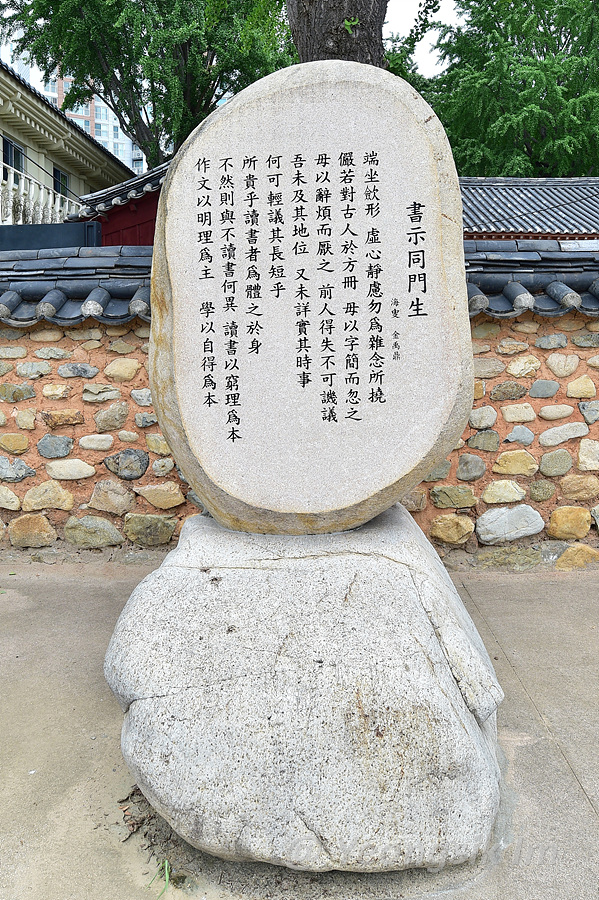 書示同門生
金禹鼎
端坐歛形 虛心靜慮勿爲雜念所撓
儼若對古人於方冊 毋以字簡而忽之
毋以辭煩而厭之 前人得失不可譏議
吾未及其地位 又未詳實其時事
何可輕議其長短乎
所貴乎讀書者爲體之於身
不然則與不讀書何異 讀書以窮理爲本
作文以明理爲主 學以自得爲本